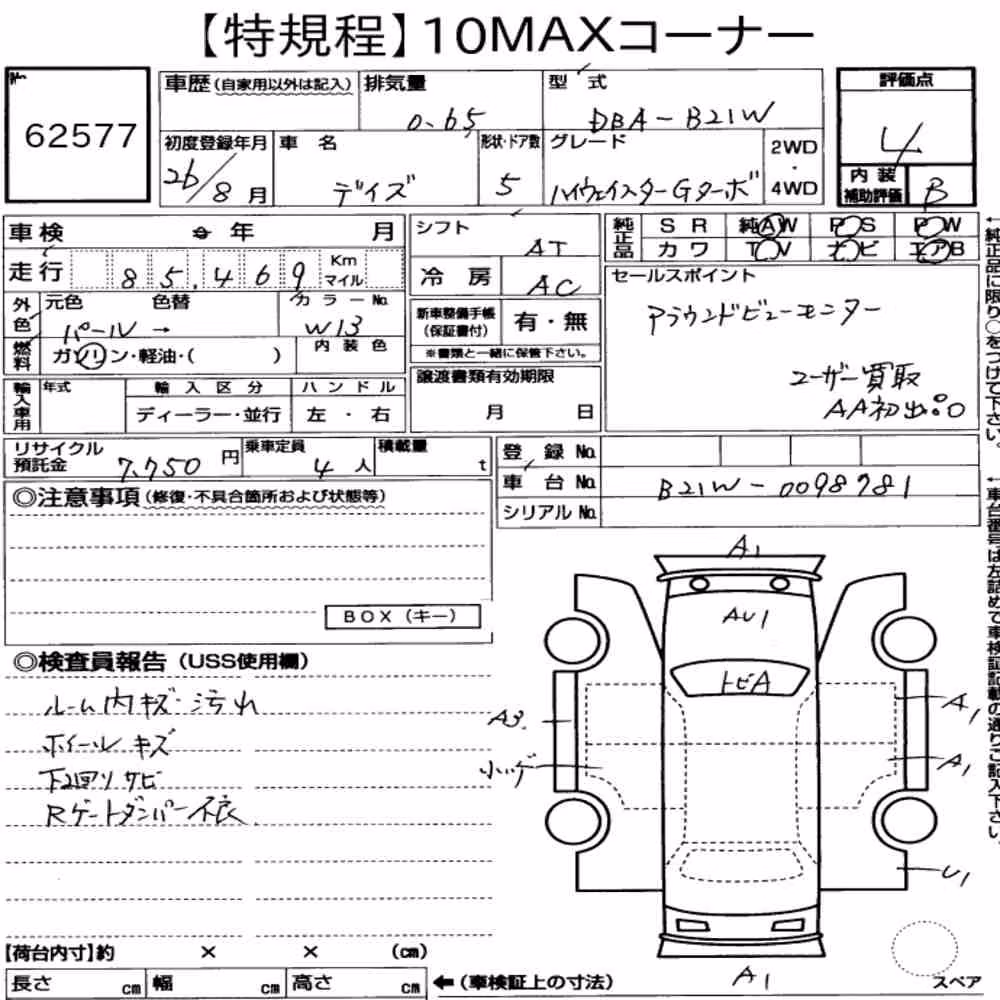 【特規程】10MAXコーナー
No.
62577
車歴(自家用以外は記入) 排気量 型式 評価点
0.65 DBA-B21W 4
初度登録年月 車名 形状・ドア数 グレード 2WD・4WD 内装補助評価
26/8月 デイズ 5 ハイウェイスターGターボ B
車検 年 月 シフト AT 純正品 SR 純AW PS PW
走行 85,469 Km マイル 冷房 AC カワ TV ナビ エアB
外色 元色 色替 カラーNo. 新車整備手帳(保証書付) 有・無 セールスポイント
パール → W13 ※書類と一緒に保管下さい。 アラウンドビューモニター
燃料 ガソリン・軽油・( ) 内装色 譲渡書類有効期限 ユーザー買取
輸入車用 年式 輸入区分 ハンドル 月 日 AA初出
ディーラー・並行 左・右
リサイクル預託金 7,750円 乗車定員 4人 積載量 t 登録No.
車台No. B21W-0098781
シリアルNo.
◎注意事項(修復・不具合箇所および状態等)
BOX(キー)
◎検査員報告(USS使用欄)
ルーム内キズ・汚れ
ホイールキズ
下廻りサビ
Rゲートダンパー不良
A1
AU1
トビA
A3
A1
A1
U1
A1
スペア
【荷台内寸】約 × × (cm)
長さ cm 幅 cm 高さ cm ←(車検証上の寸法)
←純正品に限り○をつけて下さい。
←車台番号は左詰めで車検証記載の通りご記入下さい。